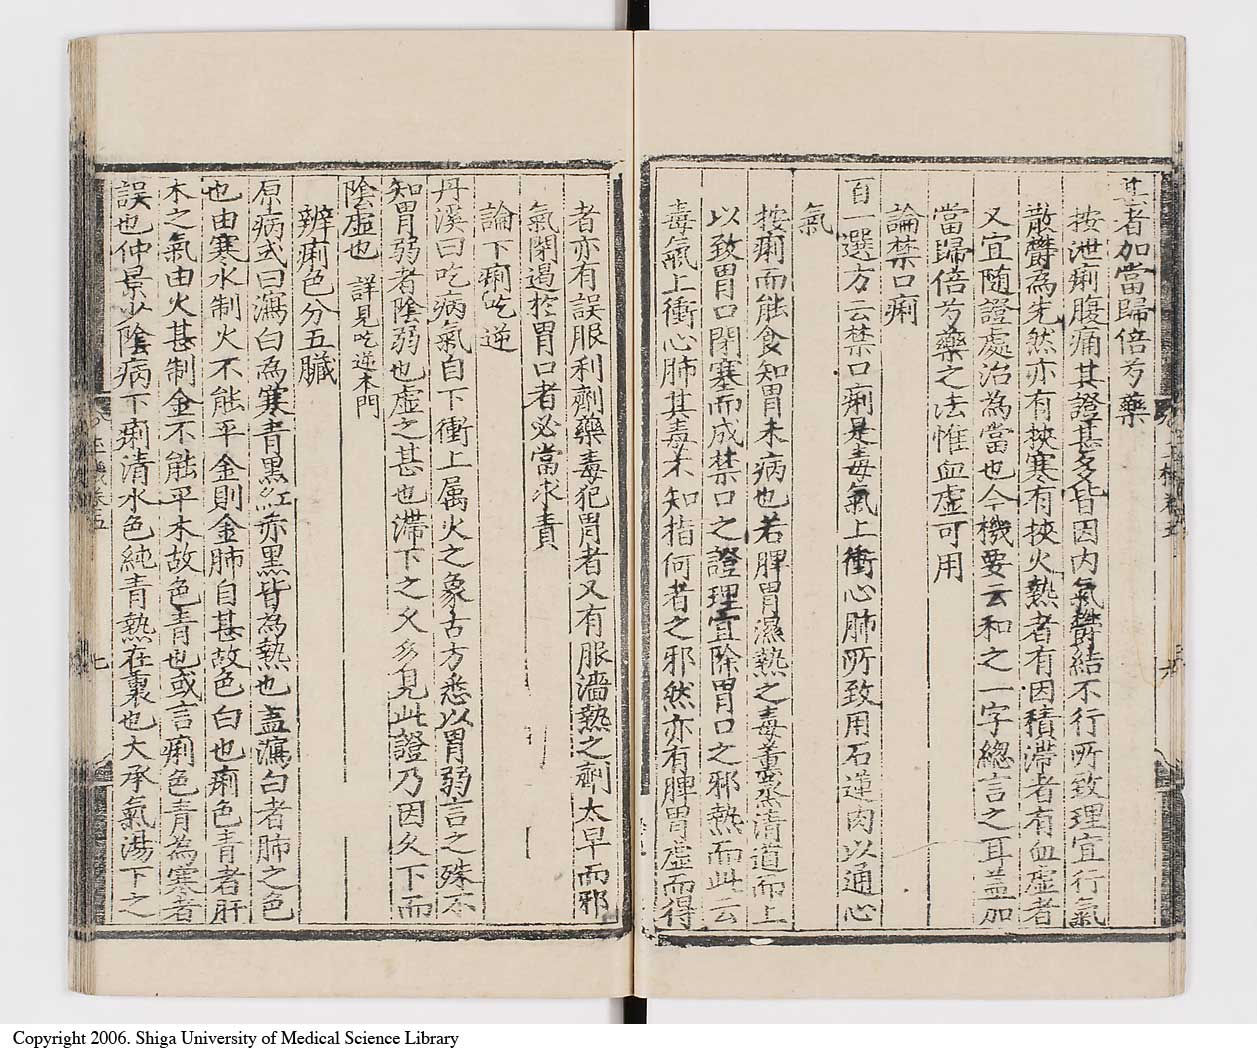 甚者加當歸倍芍藥
按泄痢腹痛其證甚多皆因内氣欝結不行所致理宜行氣
散欝為先然亦有挾寒有挾火熱者有因積滯者有血虛者
又宜隨證處治為當也今機要云和之一字總言之耳蓋加
當歸倍芍藥之法惟血虛可用
論禁口痢
百一選方云禁口痢是毒氣上衝心肺所致用石蓮肉以通心
氣
按痢而能食知胃未病也若脾胃濕熱之毒薰蒸清道而上
以致胃口閉塞而成禁口之證理宜除胃口之邪熱而此云
毒氣上衝心肺其毒不知指何者之邪然亦有脾胃虛而得
者亦有誤服利劑藥毒犯胃者又有服濇熱之劑太早而邪
氣閉遏於胃口者必當求責
論下痢吃逆
丹溪曰吃病氣自下衝上属火之象古方悉以胃弱言之殊不
知胃弱者陰弱也虛之甚也滯下之久多見此證乃因久下而
陰虛也 詳見吃逆本門
辨痢色分五臟
原病式曰瀉白為寒青黑紅赤黑皆為熱也盖瀉白者肺之色
也由寒水制火不能平金則金肺自甚故色白也痢色青者肝
木之氣由火甚制金不能平木故色青也或言痢色青為寒者
誤也仲景少陰病下痢清水色純青熱在裏也大承氣湯下之
七
Copyright 2006. Shiga University of Medical Science Library